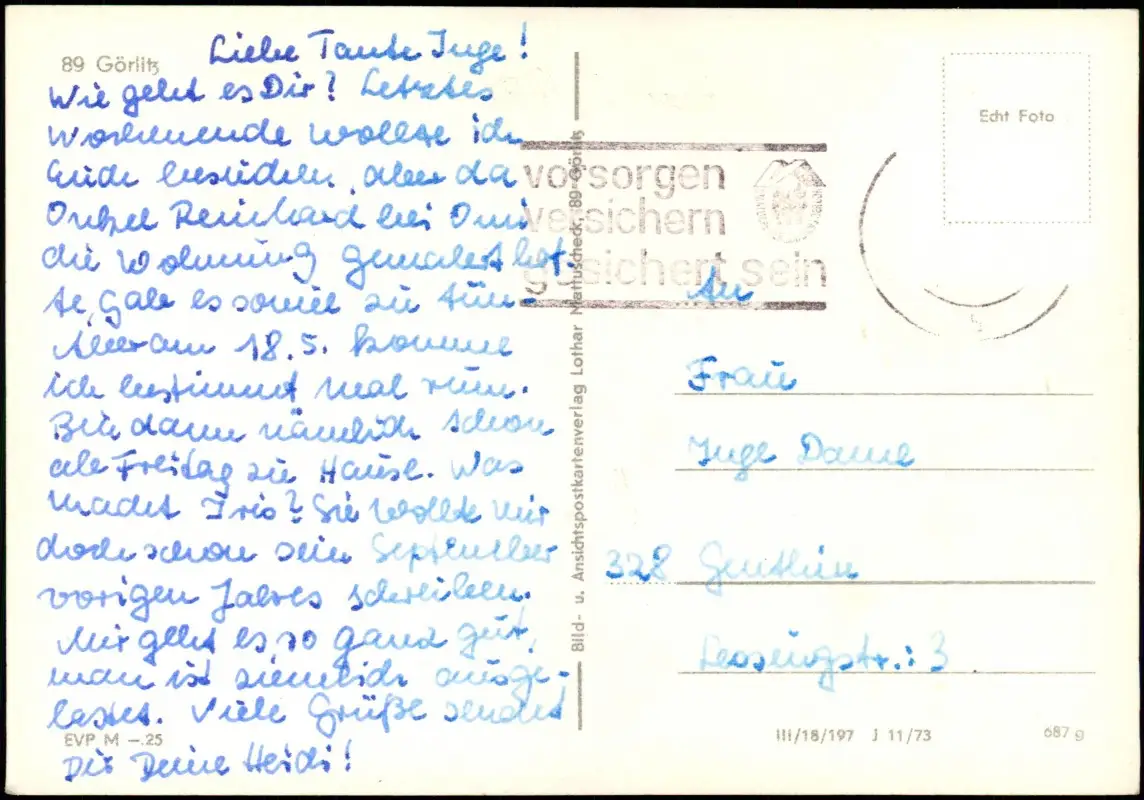 89 Görlitz
Liebe Tante Inge!
Wie geht es Dir? Letztes
Wochenende wollte ich
Euch besuchen, aber da
Onkel Reinhard bei Omi
die Wohnung gemalert hat-
te, gab es soviel zu tun.
Aber am 18.5. komme
ich bestimmt mal rum.
Bin dann nämlich schon
ab Freitag zu Hause. Was
macht Iris? Sie wollte mir
doch schon sein September
vorigen Jahres schreiben.
Mir geht es so ganz gut,
man ist ziemlich ausge-
lastet. Viele Grüße sendet
Dir Deine Heidi!
EVP M –.25
Bild- u. Ansichtspostkartenverlag Lothar Mattuscheck, 89 Görlitz
vorsorgen
versichern
gesichert sein
Echt Foto
An
Frau
Inge Dame
328 Genthin
Lessingstr.: 3
III/18/197 J 11/73
687 g